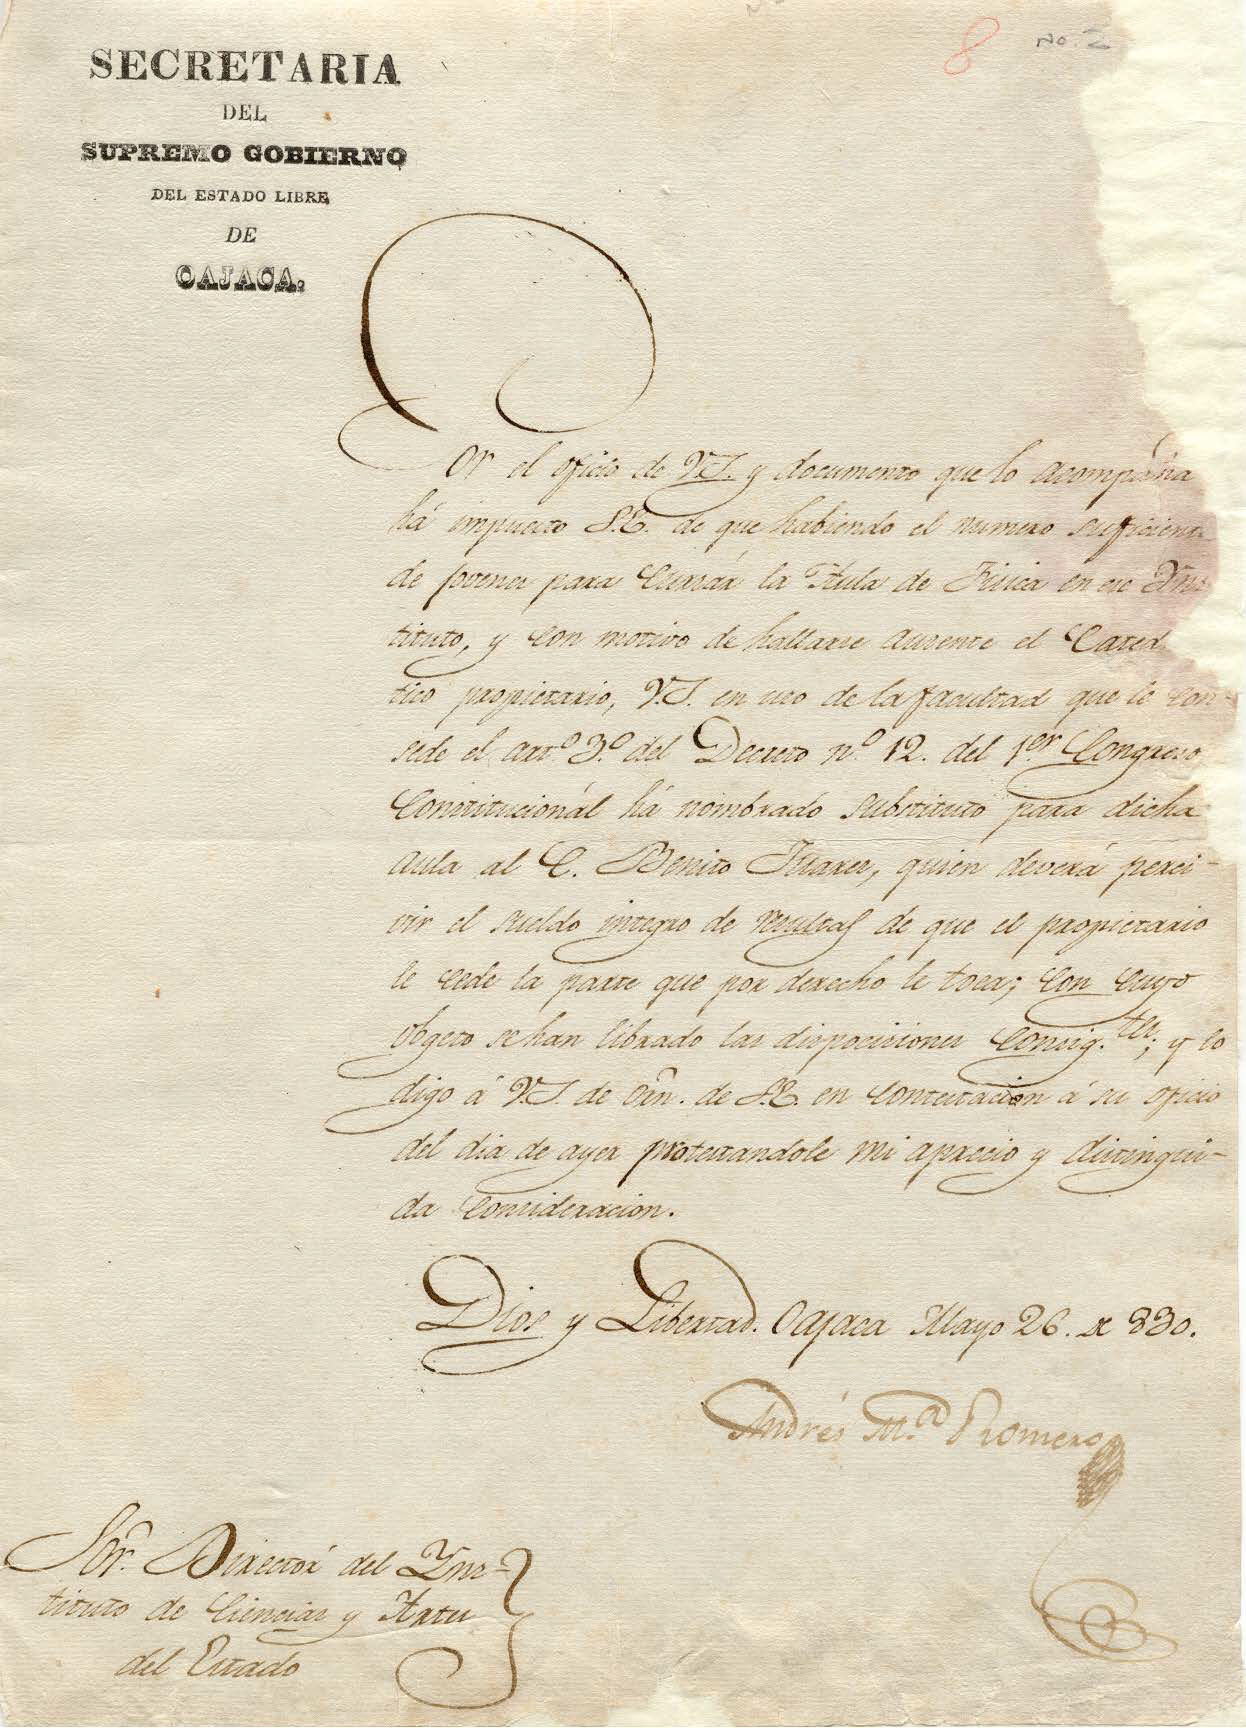 8 No. 2
SECRETARIA
DEL
SUPREMO GOBIERNO
DEL ESTADO LIBRE
DE
OAJACA.
Por el oficio de V.S. y documento que lo acompaña
há impuesto S.E. de que habiendo el numero suficiente
de jovenes para cursár la Aula de Fisica en ese Yns
tituto, y con motivo de hallarse ausente el Cated
tico propietario, V.S. en uso de la facultad que le con
sede el art.o 3.o del Decreto n.o 12. del 1.er Congreso
Constitucionál há nombrado substituto para dicha
aula al C. Benito Juares, quien deverá perci-
vir el sueldo integro de resultas de que el propietario
le cede la parte que por derecho le toca; con cuyo
obgeto se han librado las dispocisiones consig.tes; y lo
digo á V.S. de orn. de S.E. en contestacion á su oficio
del dia de ayer protestandole mi aprecio y distingui-
da consideracion.
Dios y Libertad. Oajaca Mayo 26. de 830.
Andrés M.a Romero
Sor. Directór del Yns-
tituto de Ciencias y Artes
del Estado